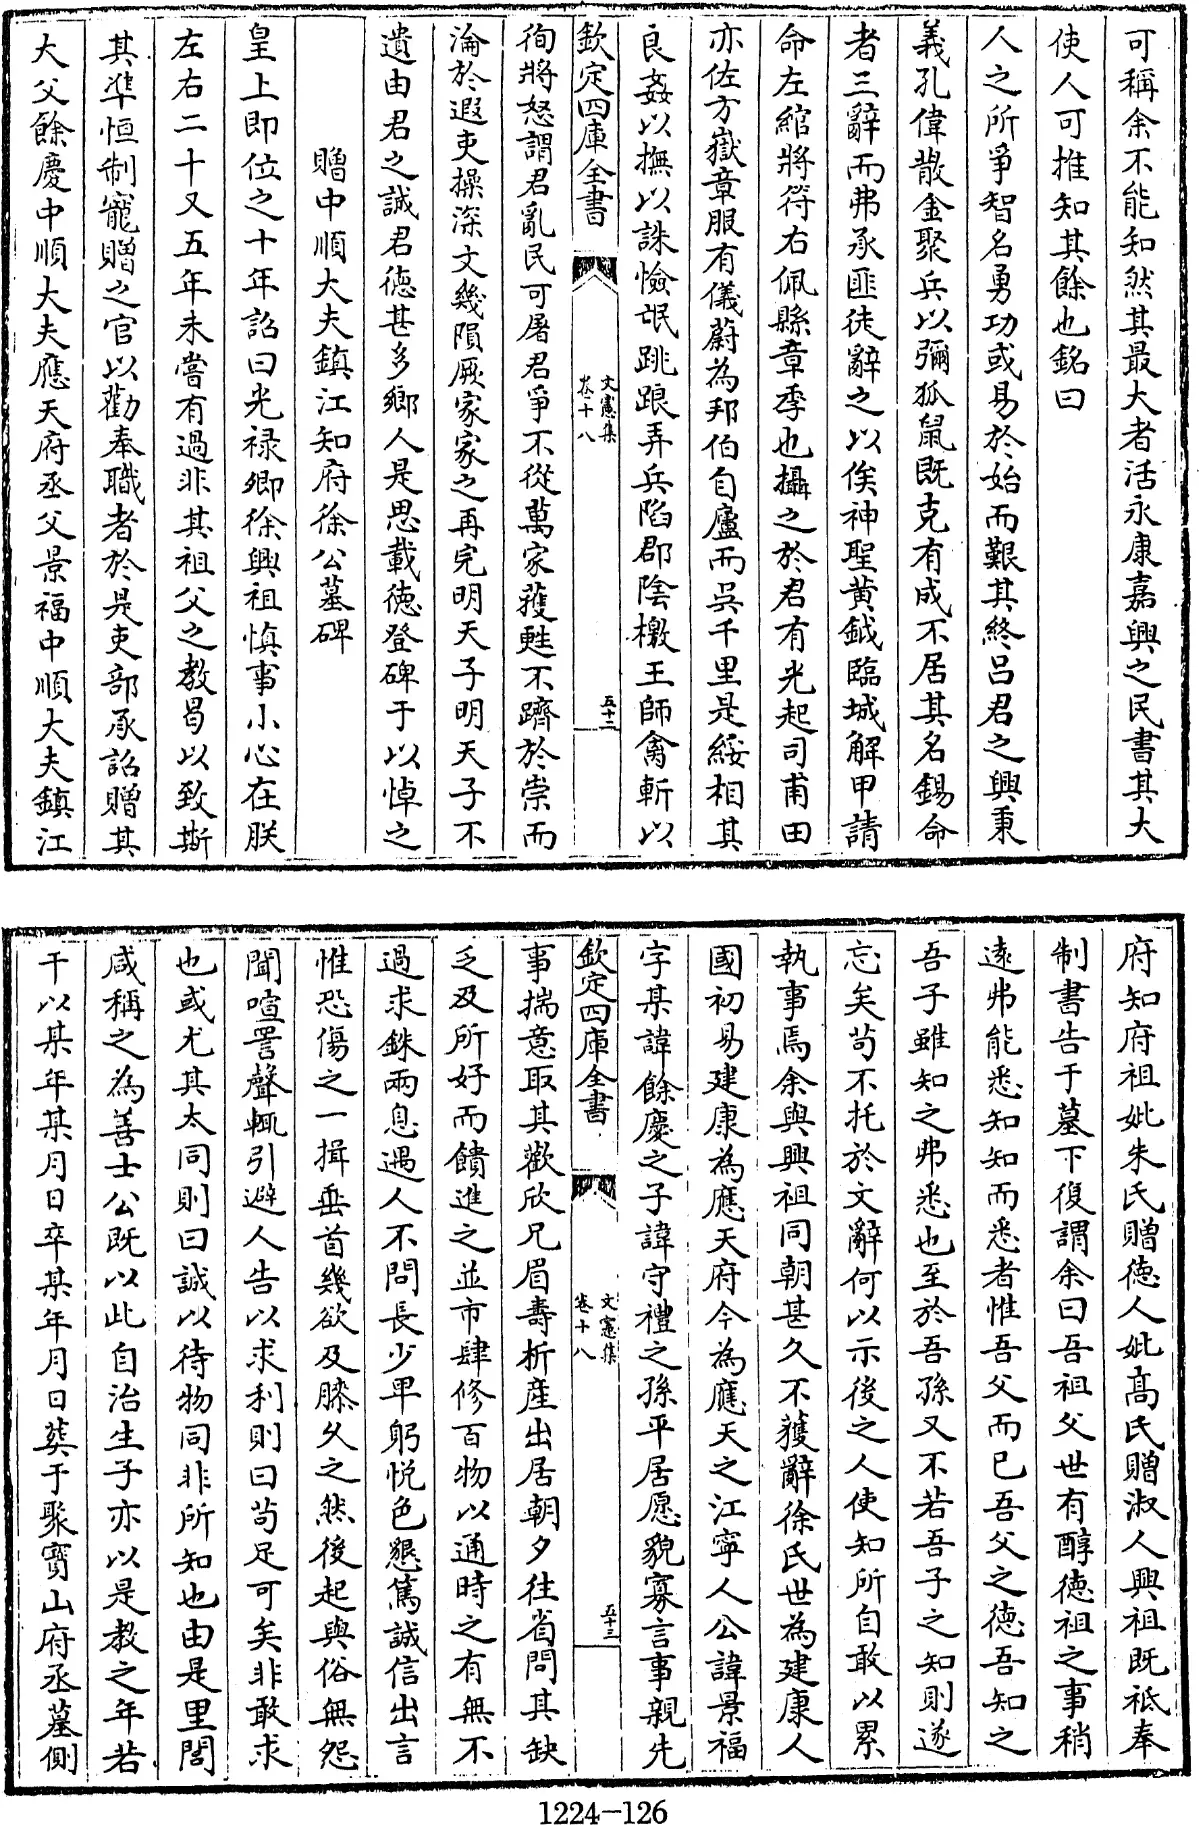 可稱余不能知然其最大者活永康嘉興之民書其大
使人可推知其餘也銘曰
人之所爭智名勇功或易於始而艱其終呂君之興秉
義孔偉散金聚兵以彌狐鼠既克有成不居其名錫命
者三辭而弗承匪徒辭之以俟神聖黄鉞臨城解甲請
命左綰將符右佩縣章季也攝之於君有光起司甫田
亦佐方嶽章服有儀蔚為邦伯自廬而吳千里是綏相其
良姦以撫以誅憸氓跳踉弄兵陷郡陰檄王師禽斬以
欽定四庫全書
文憲集
卷十八
五十二
徇將怒謂君亂民可屠君爭不從萬家獲甦不躋於崇而
淪於遐吏操深文幾隕厥家家之再完明天子明天子不
遺由君之誠君徳甚多鄉人是思載徳登碑于以悼之
贈中順大夫鎮江知府徐公墓碑
皇上即位之十年詔曰光禄卿徐興祖慎事小心在朕
左右二十又五年未嘗有過非其祖父之教曷以致斯
其準恒制寵贈之官以勸奉職者於是吏部承詔贈其
大父餘慶中順大夫應天府丞父景福中順大夫鎮江
府知府祖妣朱氏贈徳人妣髙氏贈淑人興祖既祗奉
制書告于墓下復謂余曰吾祖父世有醇徳祖之事稍
遠弗能悉知知而悉者惟吾父而已吾父之徳吾知之
吾子雖知之弗悉也至於吾孫又不若吾子之知則遂
忘矣苟不托於文辭何以示後之人使知所自敢以累
執事焉余與興祖同朝甚久不獲辭徐氏世為建康人
國初易建康為應天府今為應天之江寧人公諱景福
字某諱餘慶之子諱守禮之孫平居愿貌寡言事親先
欽定四庫全書
文憲集
卷十八
五十三
事揣意取其歡欣兄眉壽析産出居朝夕往省問其缺
乏及所好而饋進之並市肆修百物以通時之有無不
過求銖兩息遇人不問長少卑躬悦色懇篤誠信出言
惟恐傷之一揖垂首幾欲及膝久之然後起與俗無怨
聞喧詈聲輒引避人告以求利則曰苟足可矣非敢求
也或尤其太同則曰誠以待物同非所知也由是里閭
咸稱之為善士公既以此自治生子亦以是教之年若
干以某年某月日卒某年月日葬于聚寳山府丞墓側
1224-126